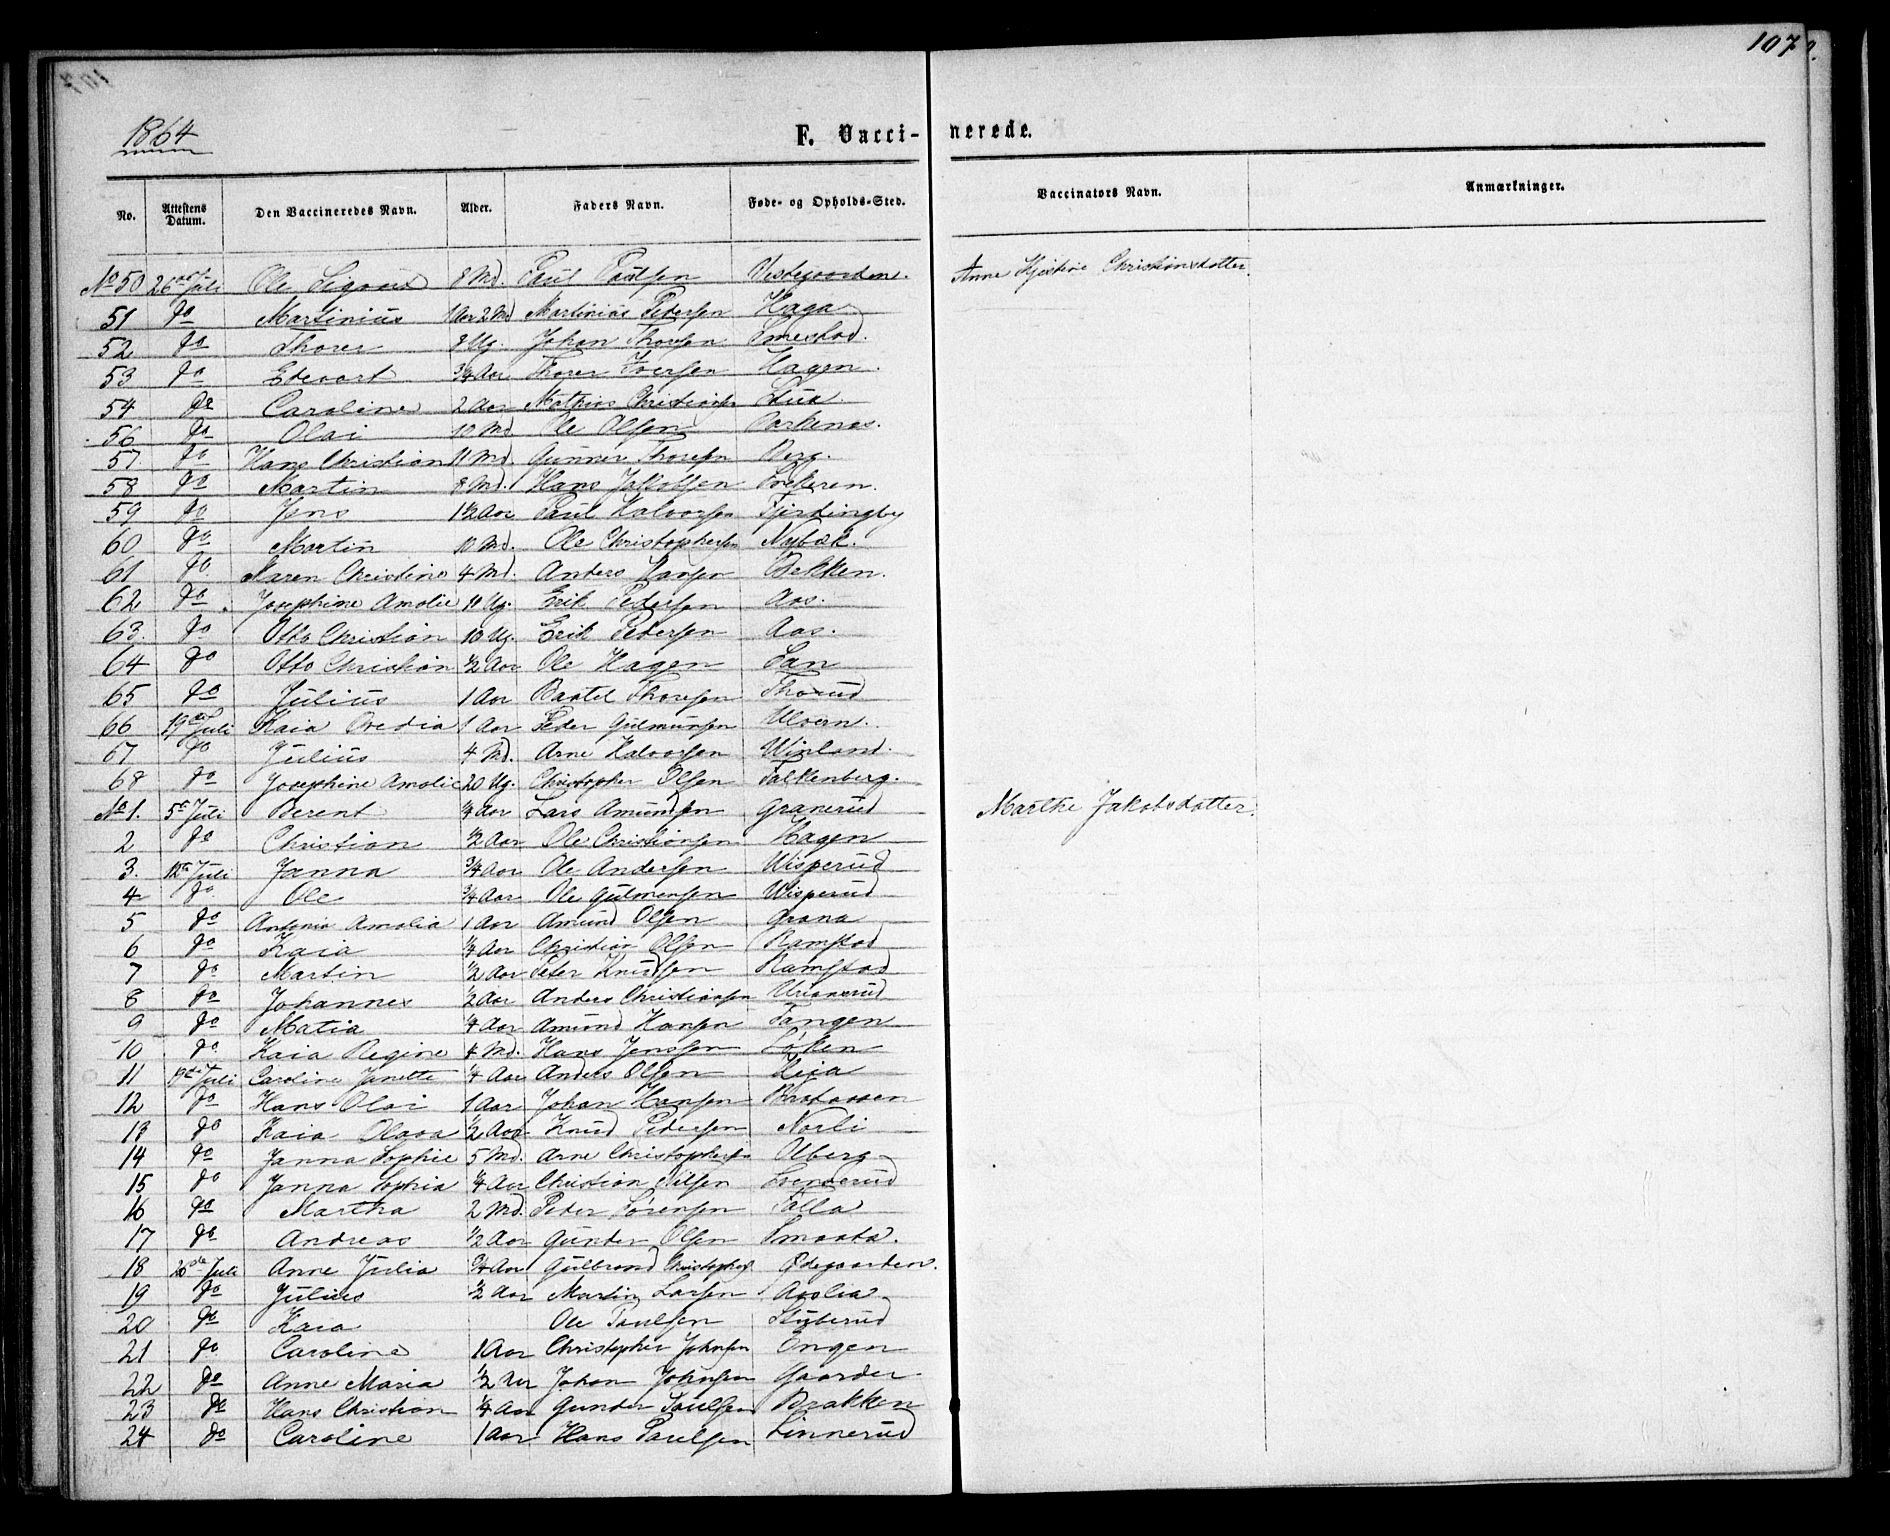 107
1864
F. Vaccinerede.
No. Attestens Datum. Den Vaccineredes Navn. Alder. Faders Navn. Føde- og Opholds-Sted. Vaccinators Navn. Anmærkninger.
No 50 26 Juli Ole Sigvard 8 Md. Paul Paulsen Vestgaarden. Anne Kjestine Christiansdatter
51 do Martinius 1 Aar 2 Md Martinius Pedersen Haga
52 do Thorer 8 Ug. Johan Thorsen Smestad.
53 do Edevart 3/4 Aar Thorer Iversen Hagen.
54 do Caroline 2 Aar Mathias Christiansen Stua
56 do Olai 10 Md Ole Olsen
57 do Hans Christian 11 Md. Gunner Thoresen Berg.
58 do Martin 8 Md. Hans Jakobsen
59 do Jens 1 1/2 Aar Paul Halvorsen Fjerdingby
60 do Martin 10 Md. Ole Christophersen Nybæk.
61 do Karen Christine 4 Md. Anders Hansen Bekken.
62 do Josephine Amalie 10 Ug. Erik Pedersen Aas.
63 do Otto Christian 10 Ug. Erik Pedersen Aas.
64 do Otto Christian 1/2 Aar Ole Hagen
65 do Julius 1 Aar Bastel Thoresen Thorud
66 19de Juli Kaia Ovedia 1 Aar Peder Gulmunsen Ulvern.
67 do Julius 4 Md. Arne Halvorsen Winland.
68 do Josephine Amalie 20 Ug. Christopher Olsen Falkenberg.
No 1. 5te Juli Berent 1/4 Aar Lars Amundsen Granerud Marthe Jakobsdatter.
2 do Christian 1/2 Aar Ole Christiansen Hagen
3. 12te Juli Janna 3/4 Aar Ole Andersen Wisperud
4 do Ole 3/4 Aar Ole Gulmensen Wisperud
5 do Antonia Amalia 1 Aar Amund Olsen Grana
6 do Kaia 1/4 Aar Christian Olsen Ramstad
7 do Martin 1/2 Aar Peter Knudsen Ramstad
8 do Johannes 1/2 Aar Anders Christiansen Urianrud
9 do Matia 1/4 Aar Amund Hansen Tangen
10 do Kaia Regine 4 Md. Hans Jenssen Løken
11 19de Juli Caroline Janette 1/4 Aar Anders Olsen Heia
12 do Hans Olai 1 Aar Johan Hansen Braataasen
13 do Kaia Olava 1/2 Aar Knud Pedersen Norli
14 do Janna Sophie 5 Md. Arne Christophersen Uberg
15 do Janna Sophia 1/4 Aar Christian Nilsen Svenserud
16 do Martha 2 Md. Peder Sørensen Palla
17 do Andreas 1/2 Aar Gunder Olsen Smaata.
18 26de Juli Anne Julia 3/4 Aar Gulbrand Christophers Ødegaarden.
19 do Julius 1/2 Aar Martin Larsen Aaslia
20 do Kaia Ole Paulsen Stuberud
21 do Caroline 1 Aar Christopher Johnsen Engen
22 do Anne Maria 1/2 Aar Johan Johnsen Gaarder
23 do Hans Christian 1/4 Aar Gunder Paulsen Brakken
24 do Caroline 1 Aar Hans Paulsen Linnerud